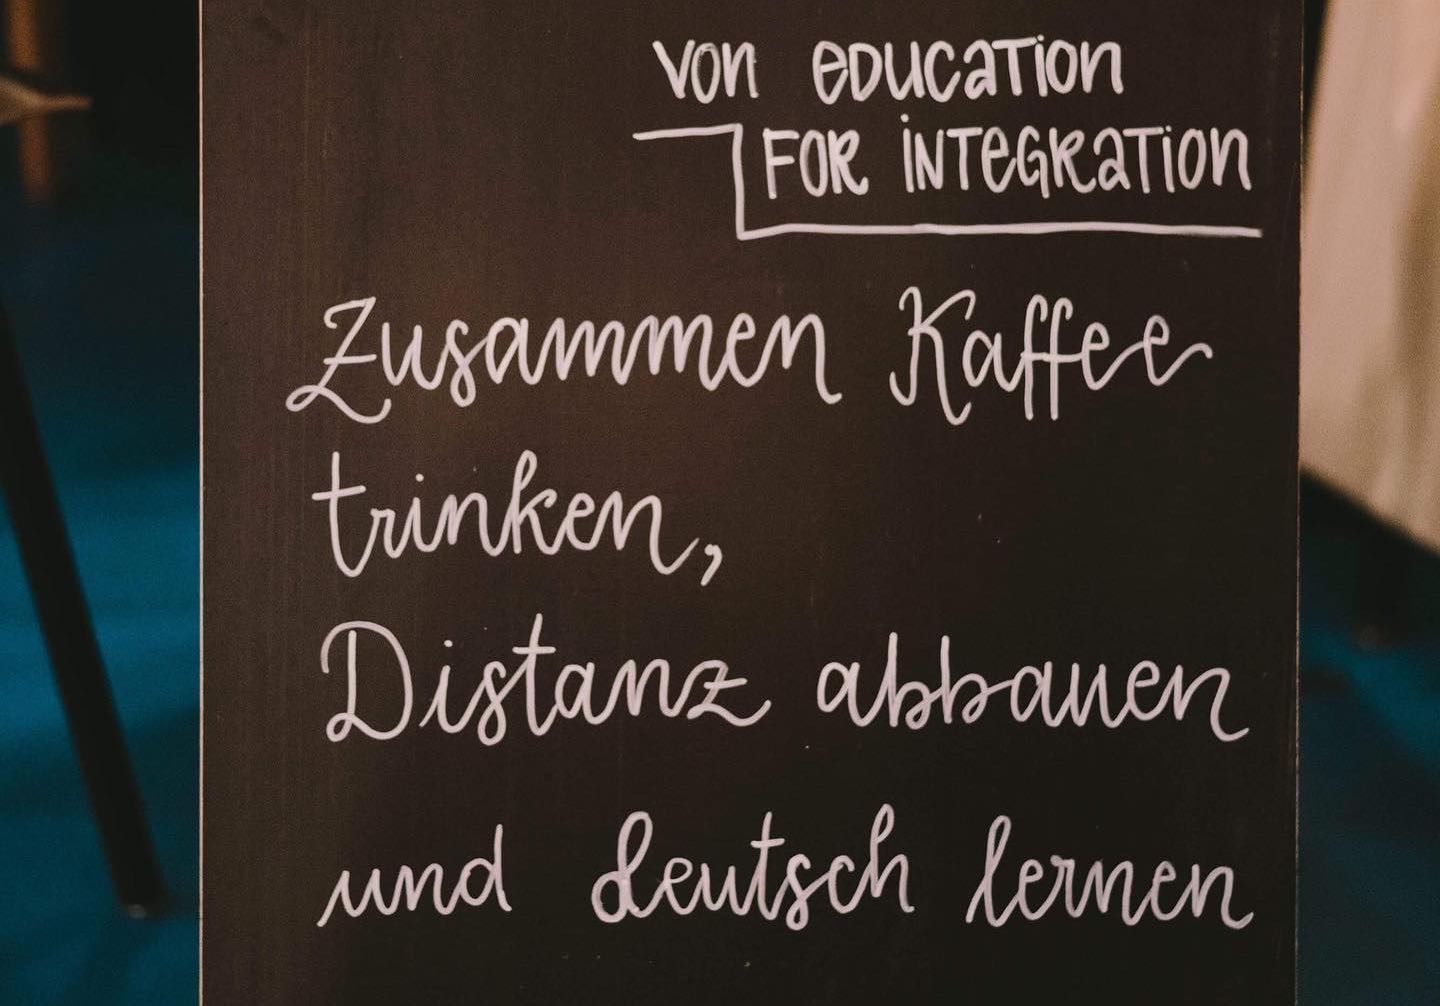 von education
for integration
Zusammen Kaffee
trinken,
Distanz abbauen
und deutsch lernen